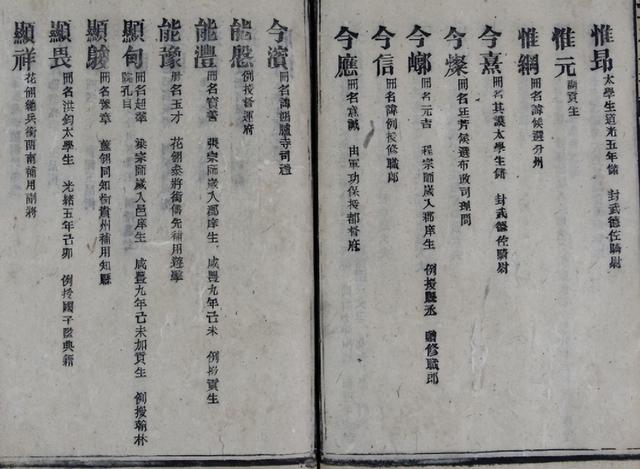 惟昂 太學生道光五年 儲 封武德佐騎尉
惟元 副貢生
惟綱 冊名 候選分州
今熹 冊名其 太學生 儲 封武德佐騎尉
今燦 冊名 芳候選布政司理問
今 冊名元吉 程宗師歲入郡庠生 例授縣丞 贈修職郎
今信 冊名 例授修職郎
今應 冊名 誠 由軍功保授都督府
今濱 冊名 鴻臚寺司禮
能慇 例授督運府
能灃 冊名 張宗師歲入郡庠生 咸豐九年己未 例授貢生
能豫 冊名玉才 花翎參將銜儘先補用遊擊
顯甸 冊名超羣 梁宗師歲入邑庠生 咸豐九年己未加貢生 例授翰林
院孔目
顯駿 冊名 章 藍翎同知銜貴州補用知縣
顯畏 冊名洪鈞太學生 光緒五年己卯 例授國子監典籍
顯祥 花翎總兵銜 南補用副將